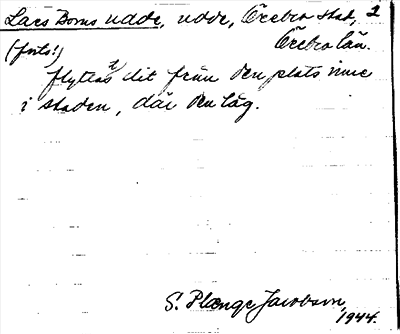 Lars Bons udde, udde, Örebro stad, 2
(forts.) Örebro län.
flyttas dit från den plats inne
i staden, där den låg.
S. Plænge Jacobson
1944.